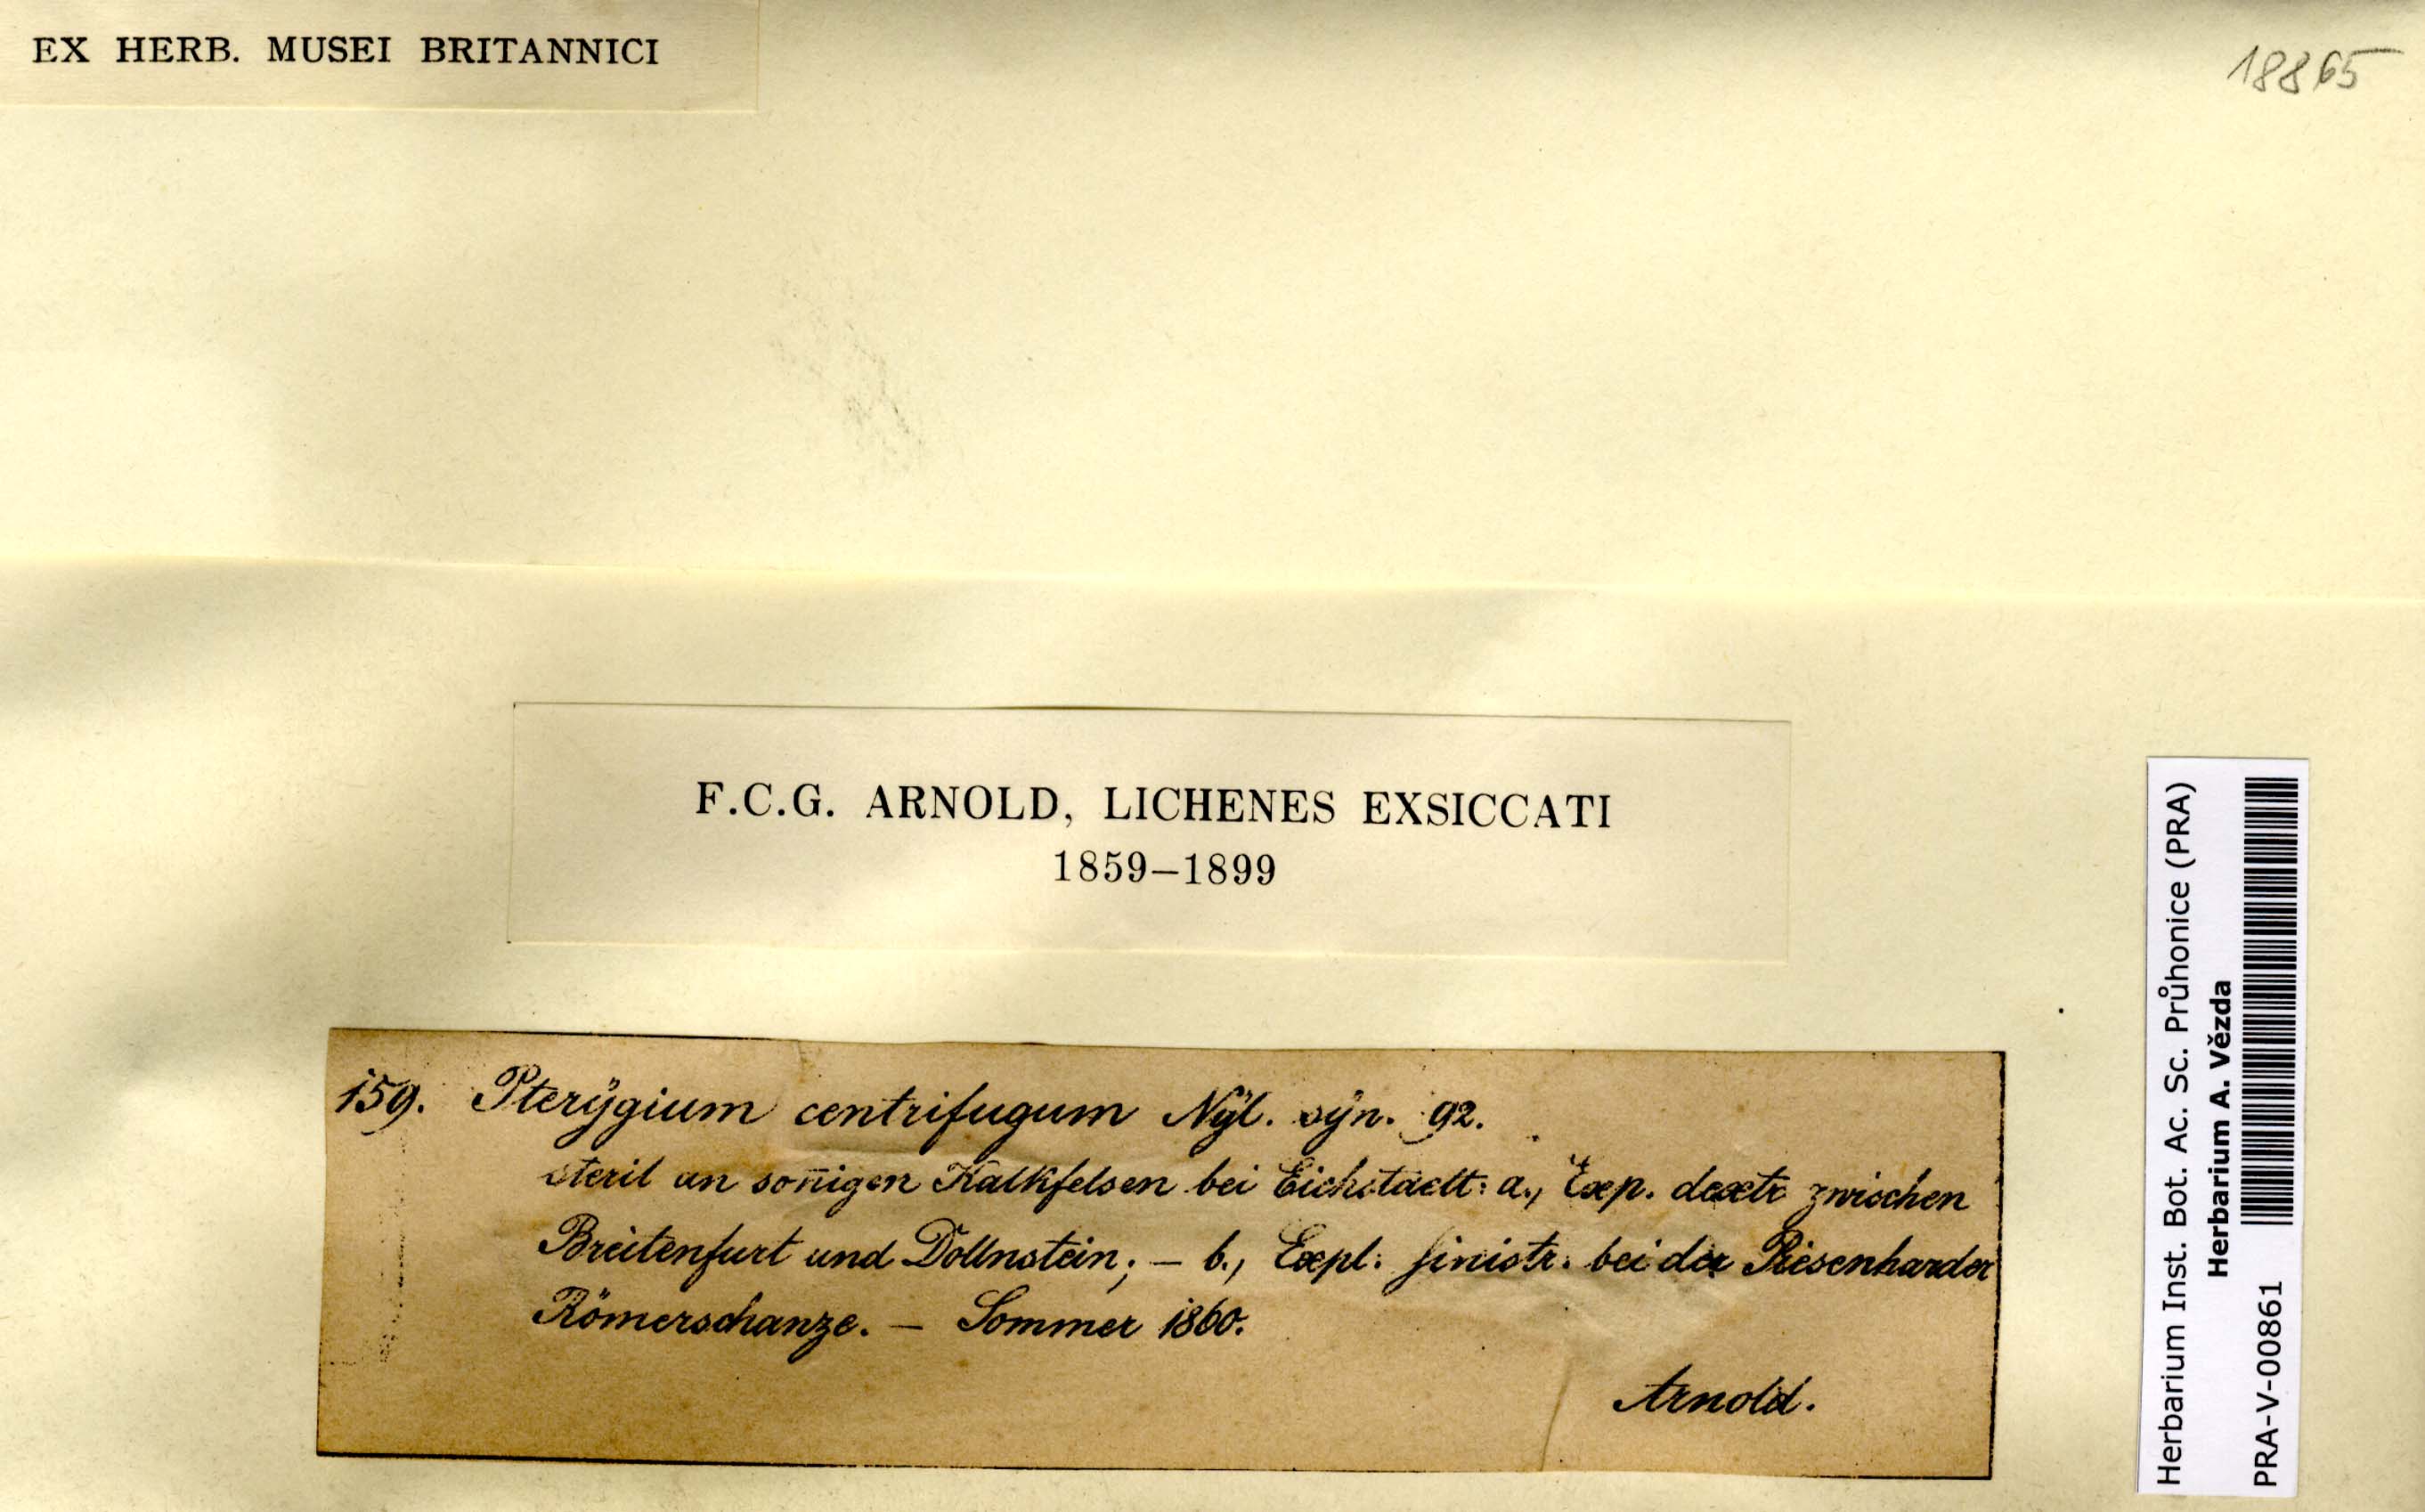 EX HERB. MUSEI BRITANNICI
18865
F.C.G. ARNOLD, LICHENES EXSICCATI
1859–1899
159. Pterÿgium centrifugum Nÿl. sÿn. 92.
steril an son̄igen Kalkfelsen bei Eichstaedt: a., Exp. dextr. zwischen
Breitenfurt und Dollnstein; – b., Expl. sinistr. bei der Riesenharder
Römerschanze. – Sommer 1860.
Arnold.
Herbarium Inst. Bot. Ac. Sc. Průhonice (PRA)
Herbarium A. Vězda
PRA-V-00861